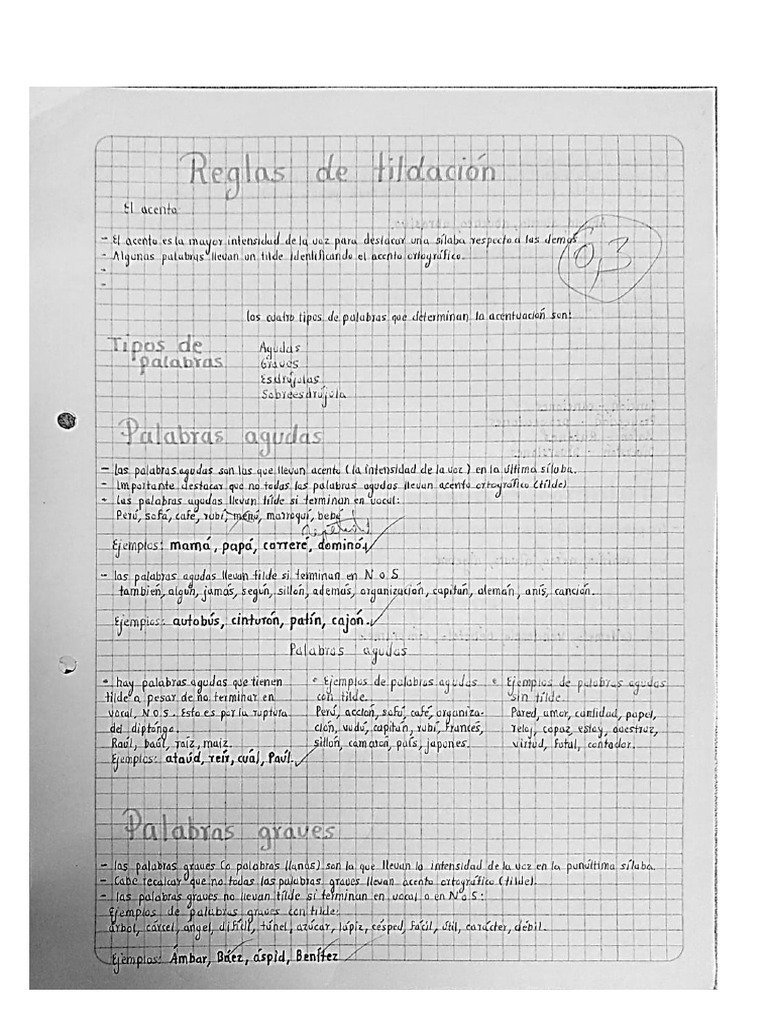 Reglas de tildación
El acento
- El acento es la mayor intensidad de la voz para destacar una sílaba respecto a las demás
- Algunas palabras llevan un tilde identificando el acento ortográfico.
-
-
0,3
Los cuatro tipos de palabras que determinan la acentuación son:
Tipos de palabras
Agudas
Graves
Esdrújulas
Sobreesdrújula
Palabras agudas
- Las palabras agudas son las que llevan acento (la intensidad de la voz) en la última sílaba.
- Importante destacar que no todas las palabras agudas llevan acento ortográfico (tilde)
- Las palabras agudas llevan tilde si terminan en vocal:
Perú, sofá, café, rubí, menú, marroquí, bebé
Ejemplos: mamá, papá, correré, dominó.
- Las palabras agudas llevan tilde si terminan en N o S
también, algún, jamás, según, sillón, además, organización, capitán, alemán, anís, canción.
Ejemplos: autobús, cinturón, patín, cajón.
Palabras agudas
• hay palabras agudas que tienen
tilde a pesar de no terminar en
vocal, N o S. Esto es por la ruptura
del diptongo.
Raúl, baúl, raíz, maíz.
Ejemplos: ataúd, reír, cuál, Paúl.
• Ejemplos de palabras agudas
con tilde.
Perú, acción, sofá, café, organiza-
ción, vudú, capitán, rubí, Francés,
sillón, camarón, país, japonés.
• Ejemplos de palabras agudas
sin tilde.
Pared, amor, cantidad, papel,
reloj, capaz, estoy, avestruz,
virtud, fatal, contador.
Palabras graves
- Las palabras graves (o palabras llanas) son la que llevan la intensidad de la voz en la punúltima sílaba.
- Cabe recalcar que no todas las palabras graves llevan acento ortográfico (tilde).
- Las palabras graves no llevan tilde si terminan en vocal o en N o S:
Ejemplos de palabras graves con tilde:
árbol, cárcel, ángel, difícil, túnel, azúcar, lápiz, césped, fácil, útil, carácter, débil.
Ejemplos: Ámbar, Báez, áspid, Benítez